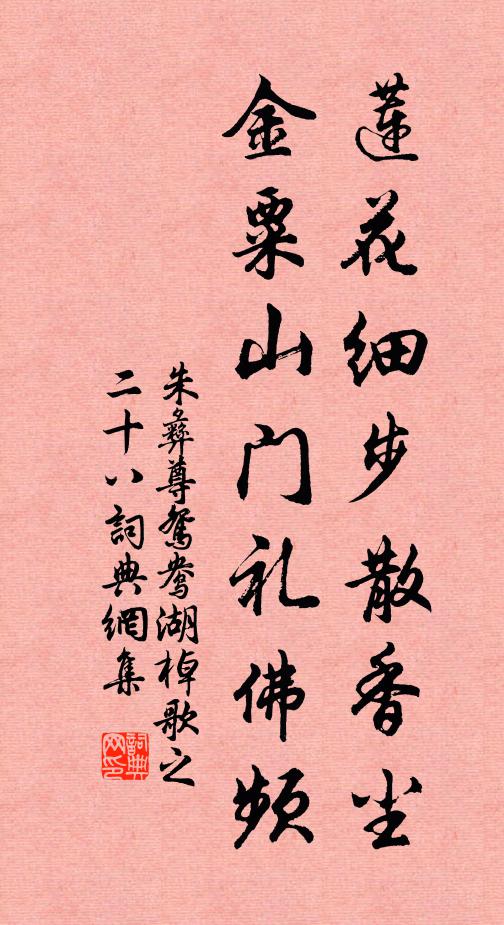 莲花细步散香尘
金粟山门礼佛频
朱彝尊鸳鸯湖棹歌之
二十八詞典網集
詞典网印